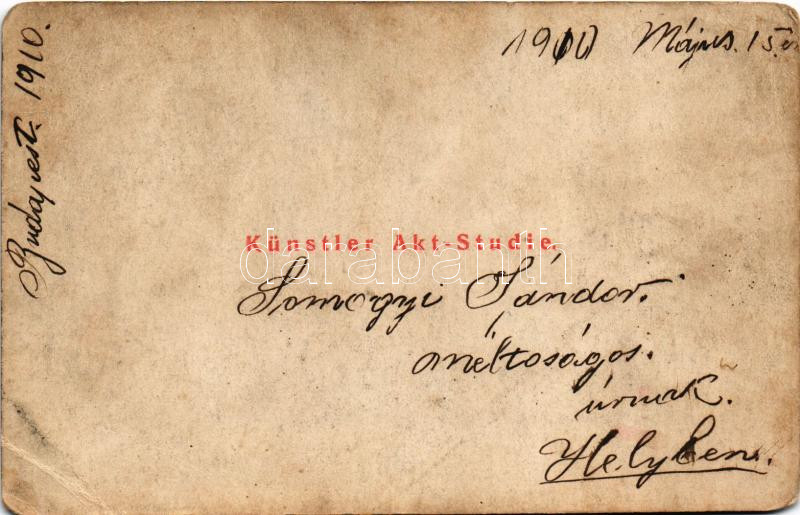 1910 Május. 15.én
Budapest. 1910.
Künstler Akt-Studie.
darabanth
Somogyi Sándor.
méltoságos.
úrnak.
Helyben.